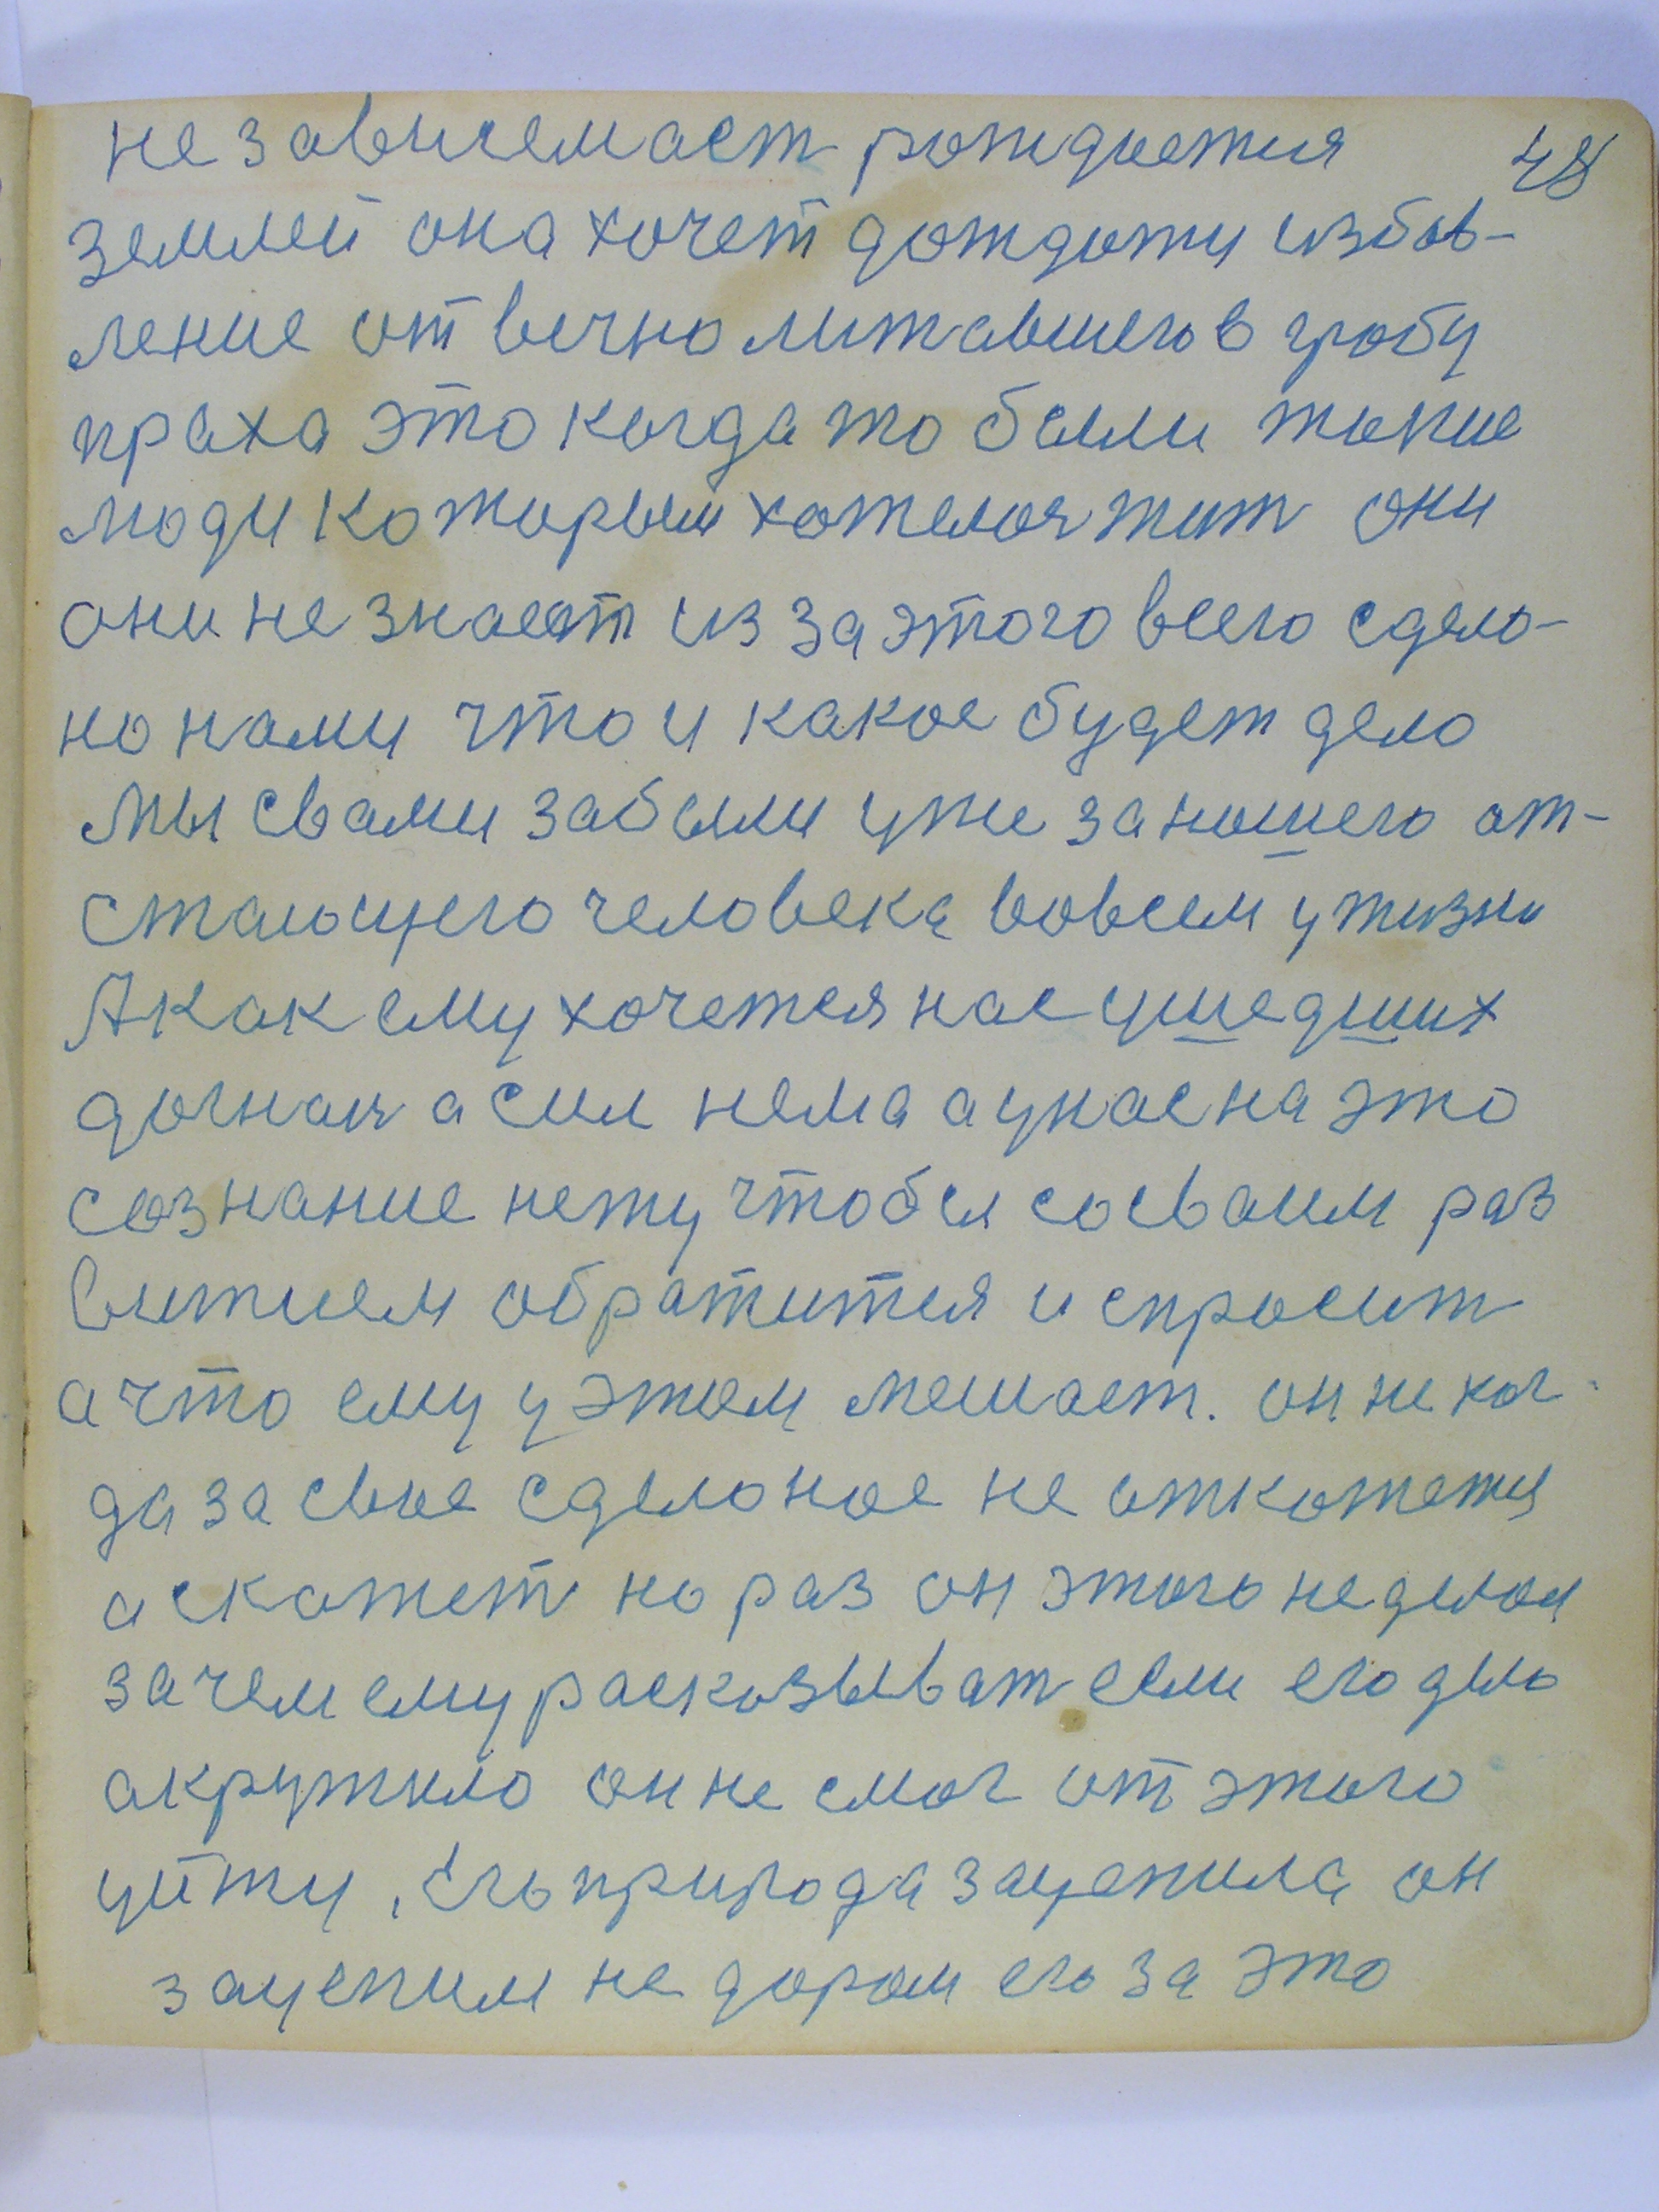 независемаст рождается 48
землей она хочет дождати избав-
ление от вечно лижавшего в гробу
праха это когда то были такие
люди каторым хателоя жит они
они не знают из за этого всего сдела-
но нами что и какое будет дело
Мы свами забыли уже за нашего от-
стающего человека вовсем у жизни
А как ему хочется нас ушедших
догнат а сил нема а унас на это
сознание нету чтобы сосваим раз
витием обратится и спросит
а что ему у этом мешает. он не ког-
да за свое сделоное не откажется
а скажет но раз он этого не делал
зачем ему расказыват если его дело
акружило он не смог от этого
уйти, Его природа зацепила он
зацепил не даром его за это